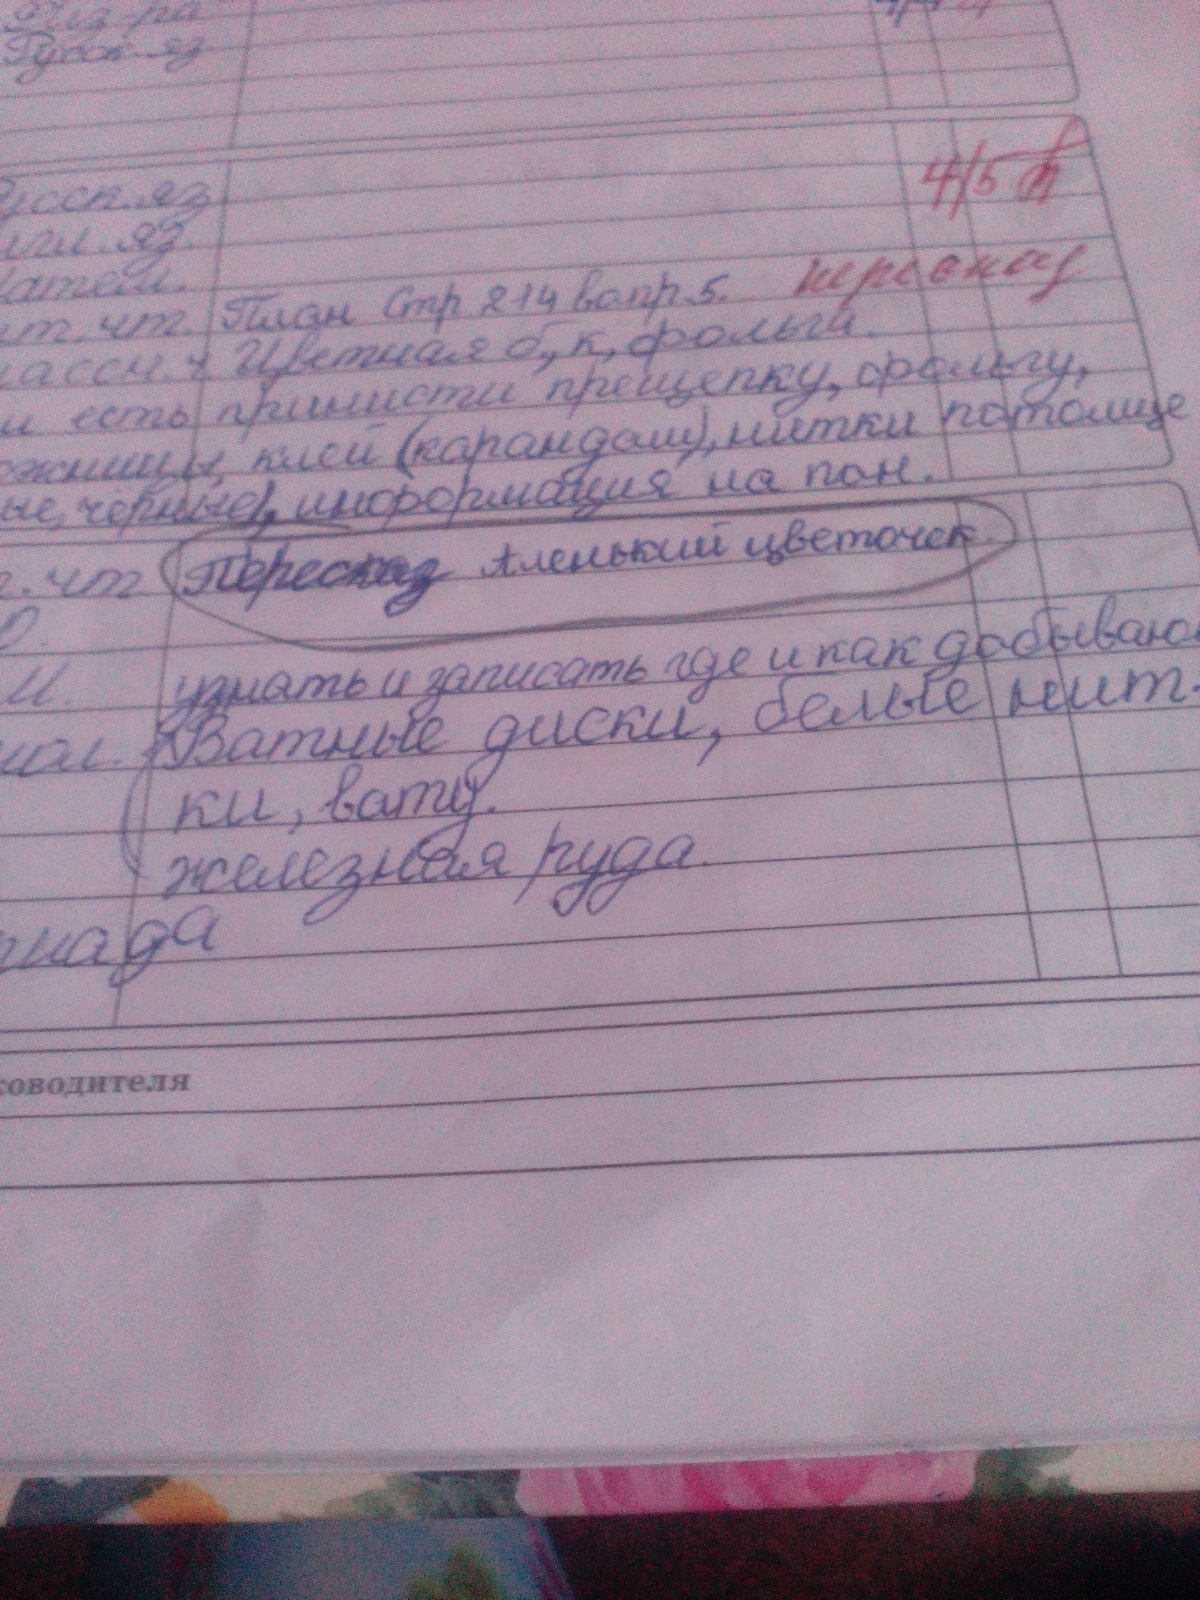 Физ-ра
Русск. яз
русск. яз
4/5
нгл. яз.
матем.
ит. чт. План Стр 214 вопр 5. пересказ
классн. ч Цветная б, к, фольга.
и есть принисти прещепку, фольгу,
ожницы, клей (карандаш), нитки потолще
ые, чёрные), информация на пон.
т. чт Пересказ Аленький цветочек.
О.
И. узнать и записать где и как добываю
Ватные диски, белые нит-
ки, вату.
железная руда.
иада
ководителя